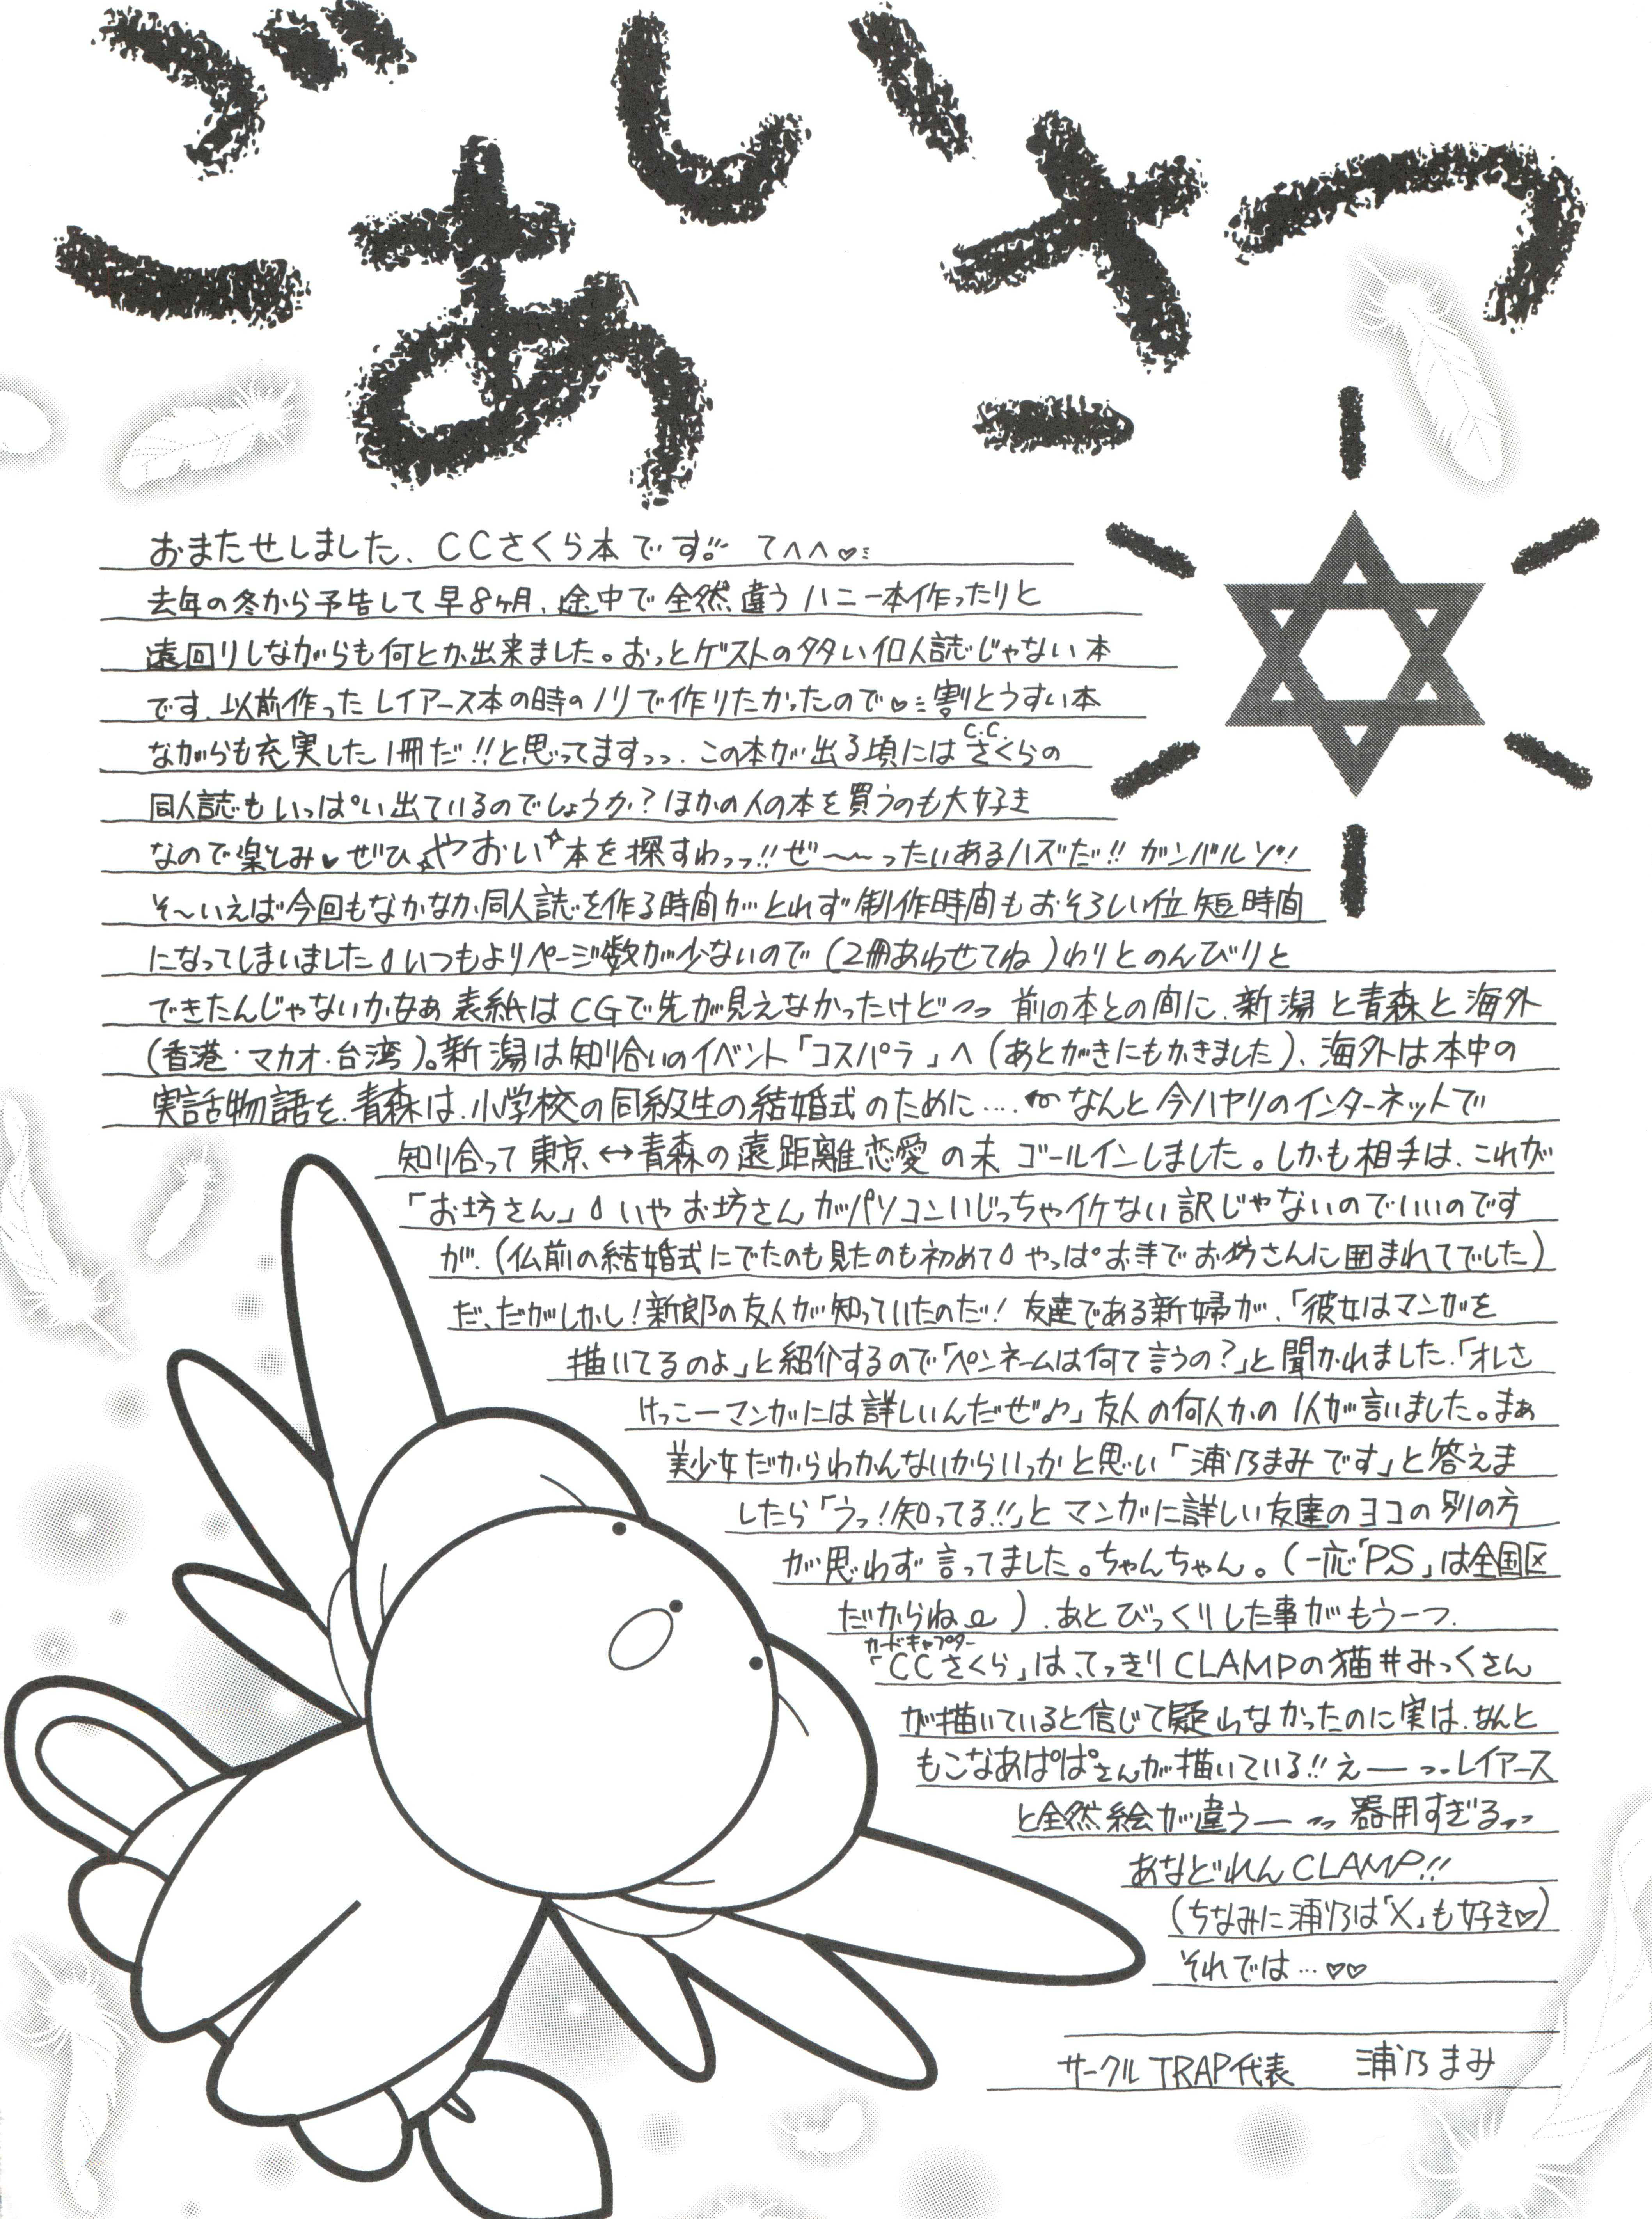 ごあいさつ
おまたせしました、CCさくら本です!! てへへ♡
去年の冬から予告して早8ヶ月、途中で全然違うハニー本作ったりと
遠回りしながらも何とか出来ました。おっとゲストの多い個人誌じゃない本
です、以前作ったレイアース本の時のノリで作りたかったので♡割とうすい本
ながらも充実した1冊だ!!と思ってますっっ、この本が出る頃にはC.C.さくらの
同人誌もいっぱい出ているのでしょうか?ほかの人の本を買うのも大好き
なので楽しみ♥ぜひやおい本を探すわっっ!!ぜ〜〜ったいあるハズだ!!ガンバルゾ!!
そ〜いえば今回もなかなか同人誌を作る時間がとれず制作時間もおそろしい位短時間
になってしまいました いつもよりページ数が少ないので(2冊あわせてね)わりとのんびりと
できたんじゃないかなぁ 表紙はCGで先が見えなかったけどっっ 前の本との間に、新潟と青森と海外
(香港・マカオ・台湾)。新潟は知り合いのイベント「コスパラ」へ(あとがきにもかきました)、海外は本中の
実話物語を、青森は、小学校の同級生の結婚式のために…、なんと今ハヤリのインターネットで
知り合って東京↔青森の遠距離恋愛の末 ゴールインしました。しかも相手は、これが
「お坊さん」 いやお坊さんがパソコンいじっちゃイケない訳じゃないのでいいのです
が、(仏前の結婚式にでたのも見たのも初めて やっぱお寺でお坊さんに囲まれてでした)
だ、だがしかし!新郎の友人が知っていたのだ!友達である新婦が、「彼女はマンガを
描いてるのよ」と紹介するので「ペンネームは何て言うの?」と聞かれました、「オレさ
けっこーマンガには詳しいんだぜ♪」友人の何人かの1人が言いました。まぁ
美少女だからわかんないからいっかと思い「浦乃まみです」と答えま
したら「うっ!知ってる!!」とマンガに詳しい友達のヨコの別の方
が思わず言ってました。ちゃんちゃん。(一応「PS」は全国区
だからね)、あとびっくりした事がもう一つ、
「CCさくら」は、てっきりCLAMPの猫井みっくさん
カードキャプター
が描いていると信じて疑わなかったのに実は、なんと
もこなあぱぱさんが描いている!!えーーっっレイアース
と全然絵が違うーーっっ 器用すぎるっっ
あなどれんCLAMP!!
(ちなみに浦乃は「X」も好き♡)
それでは…♡♡
サークルTRAP代表 浦乃まみ